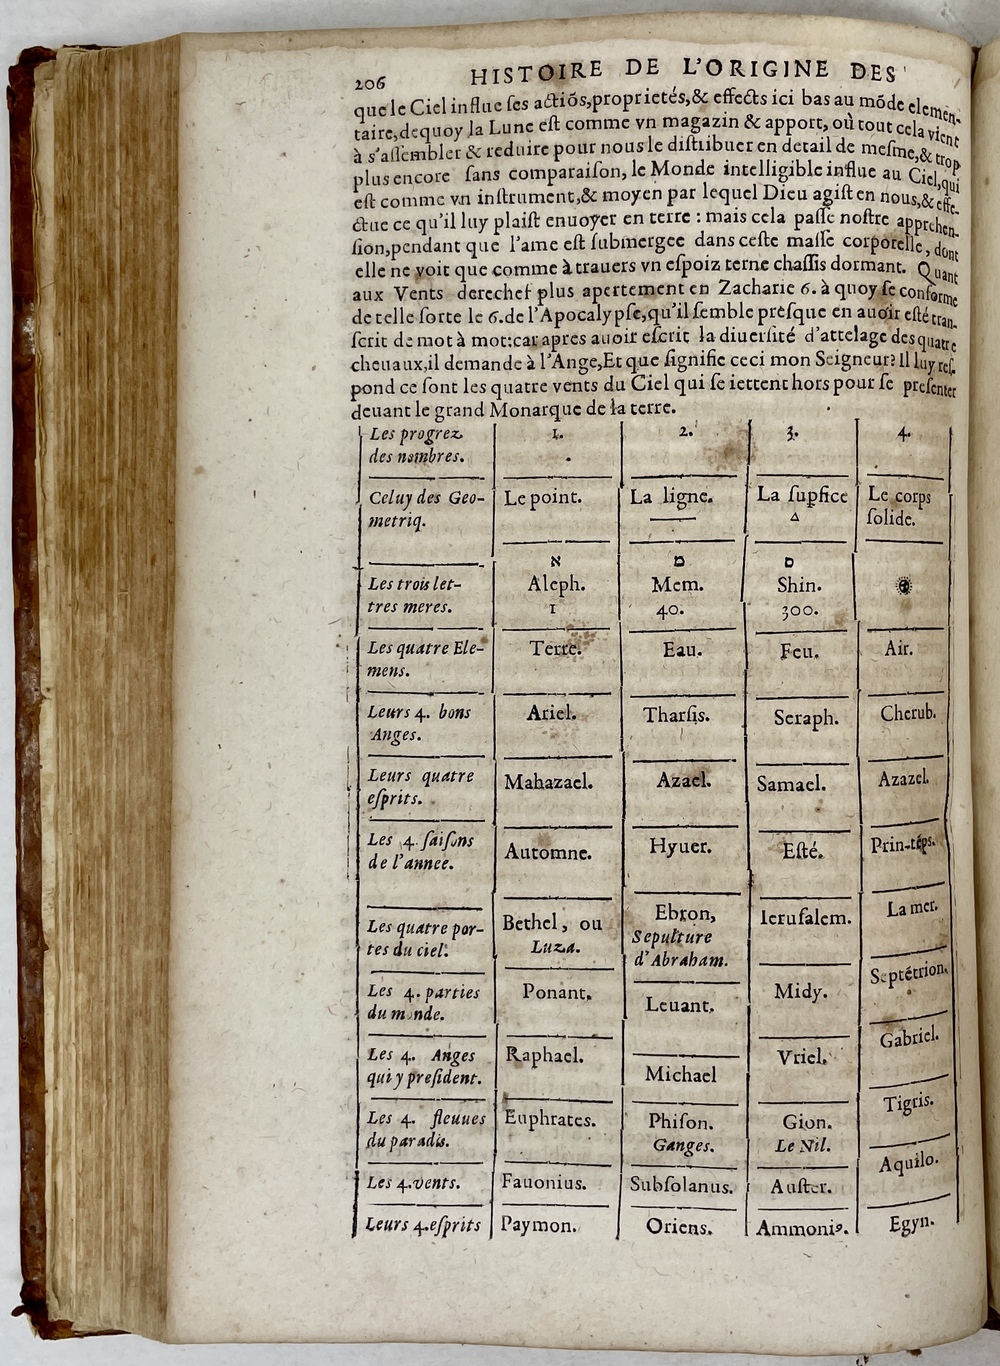 206 HISTOIRE DE L'ORIGINE DES
que le Ciel influe ſes actiõs,proprietés,& effects ici bas au mõde elemen-
taire,dequoy la Lune eſt comme vn magazin & apport, où tout cela vient
à s'aſſembler & reduire pour nous le diſtribuer en detail de meſme,& trop
plus encore ſans comparaiſon, le Monde intelligible influe au Ciel,qui
eſt comme vn inſtrument,& moyen par lequel Dieu agiſt en nous,& effe-
ctue ce qu'il luy plaiſt enuoyer en terre : mais cela paſſe noſtre apprehen-
ſion,pendant que l'ame eſt ſubmergee dans ceſte maſſe corporelle, dont
elle ne voit que comme à trauers vn eſpoiz terne chaſſis dormant. Quant
aux Vents derechef plus apertement en Zacharie 6. à quoy ſe conforme
de telle ſorte le 6.de l'Apocalypſe,qu'il ſemble preſque en auoir eſté tran-
ſcrit de mot à mot:car apres auoir eſcrit la diuerſité d'attelage des quatre
cheuaux,il demande à l'Ange,Et que ſignifie ceci mon Seigneur? Il luy reſ-
pond ce ſont les quatre vents du Ciel qui ſe iettent hors pour ſe preſenter
deuant le grand Monarque de la terre.
Les progrez 1. 2. 3. 4.
des nombres.
Celuy des Geo- Le point. La ligne. La ſupfice Le corps
metriq. △ ſolide.
א מ ם
Les trois let- Aleph. Mem. Shin.
tres meres. 1 40. 300.
Les quatre Ele- Terre. Eau. Feu. Air.
mens.
Leurs 4. bons Ariel. Tharſis. Seraph. Cherub.
Anges.
Leurs quatre Mahazael. Azael. Samael. Azazel.
eſprits.
Les 4. ſaiſons Automne. Hyuer. Eſté. Prin-tẽps.
de l'annee.
Les quatre por- Bethel, ou Ebron, Ieruſalem. La mer.
tes du ciel. Luza. Sepulture
d'Abraham.
Les 4. parties Ponant. Leuant. Midy. Septẽtrion.
du monde.
Les 4. Anges Raphael. Michael Vriel. Gabriel.
qui y preſident.
Les 4. fleuues Euphrates. Phiſon. Gion. Tigris.
du paradis. Ganges. Le Nil.
Les 4.vents. Fauonius. Subſolanus. Auſter. Aquilo.
Leurs 4.eſprits Paymon. Oriens. Ammoniꝰ. Egyn.